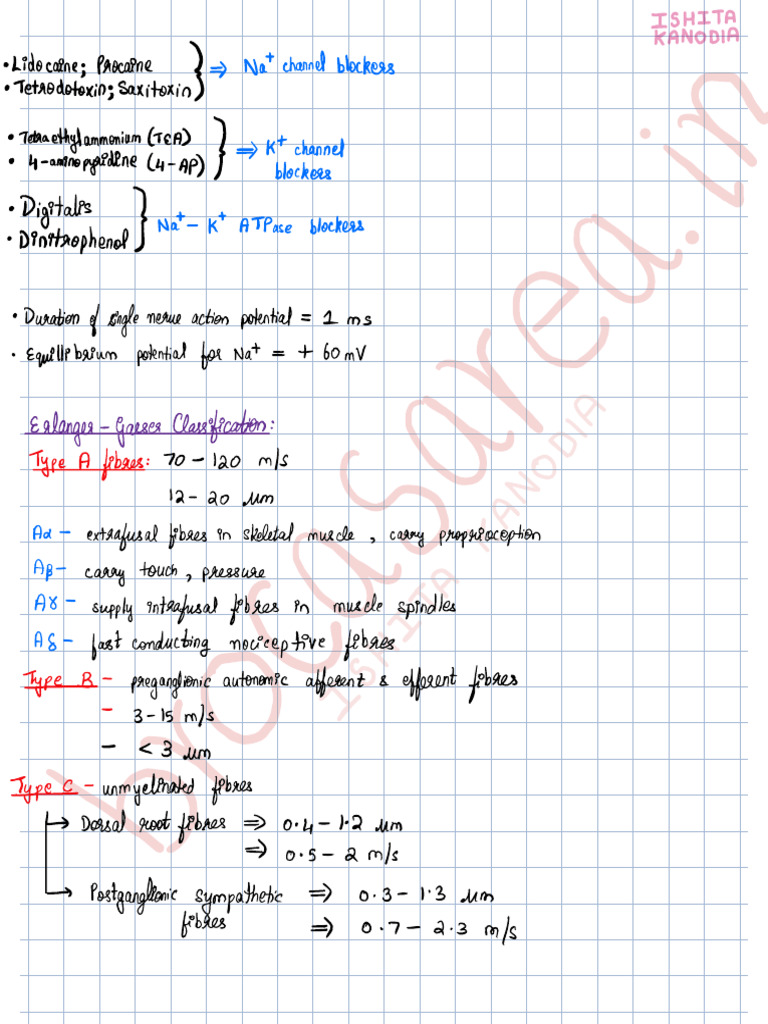 ISHITA
KANODIA
• Lidocaine; Procaine
• Tetrodotoxin; Saxitoxin
⇒ Na+ channel blockers
• Tetraethylammonium (TEA)
• 4-aminopyridine (4-AP)
⇒ K+ channel
blockers
• Digitalis
• Dinitrophenol
Na+ – K+ ATPase blockers
• Duration of single nerve action potential = 1 ms
• Equilibrium potential for Na+ = + 60 mV
Erlanger – Gasser Classification:
Type A fibres: 70 – 120 m/s
12 – 20 μm
Aα – extrafusal fibres in skeletal muscle, carry proprioception
Aβ – carry touch, pressure
Aγ – supply intrafusal fibres in muscle spindles
Aδ – fast conducting nociceptive fibres
Type B – preganglionic autonomic afferent & efferent fibres
– 3 – 15 m/s
– < 3 μm
Type C – unmyelinated fibres
→ Dorsal root fibres ⇒ 0.4 – 1.2 μm
⇒ 0.5 – 2 m/s
→ Postganglionic sympathetic ⇒ 0.3 – 1.3 μm
fibres ⇒ 0.7 – 2.3 m/s
brocasarea.in
ISHITA KANODIA